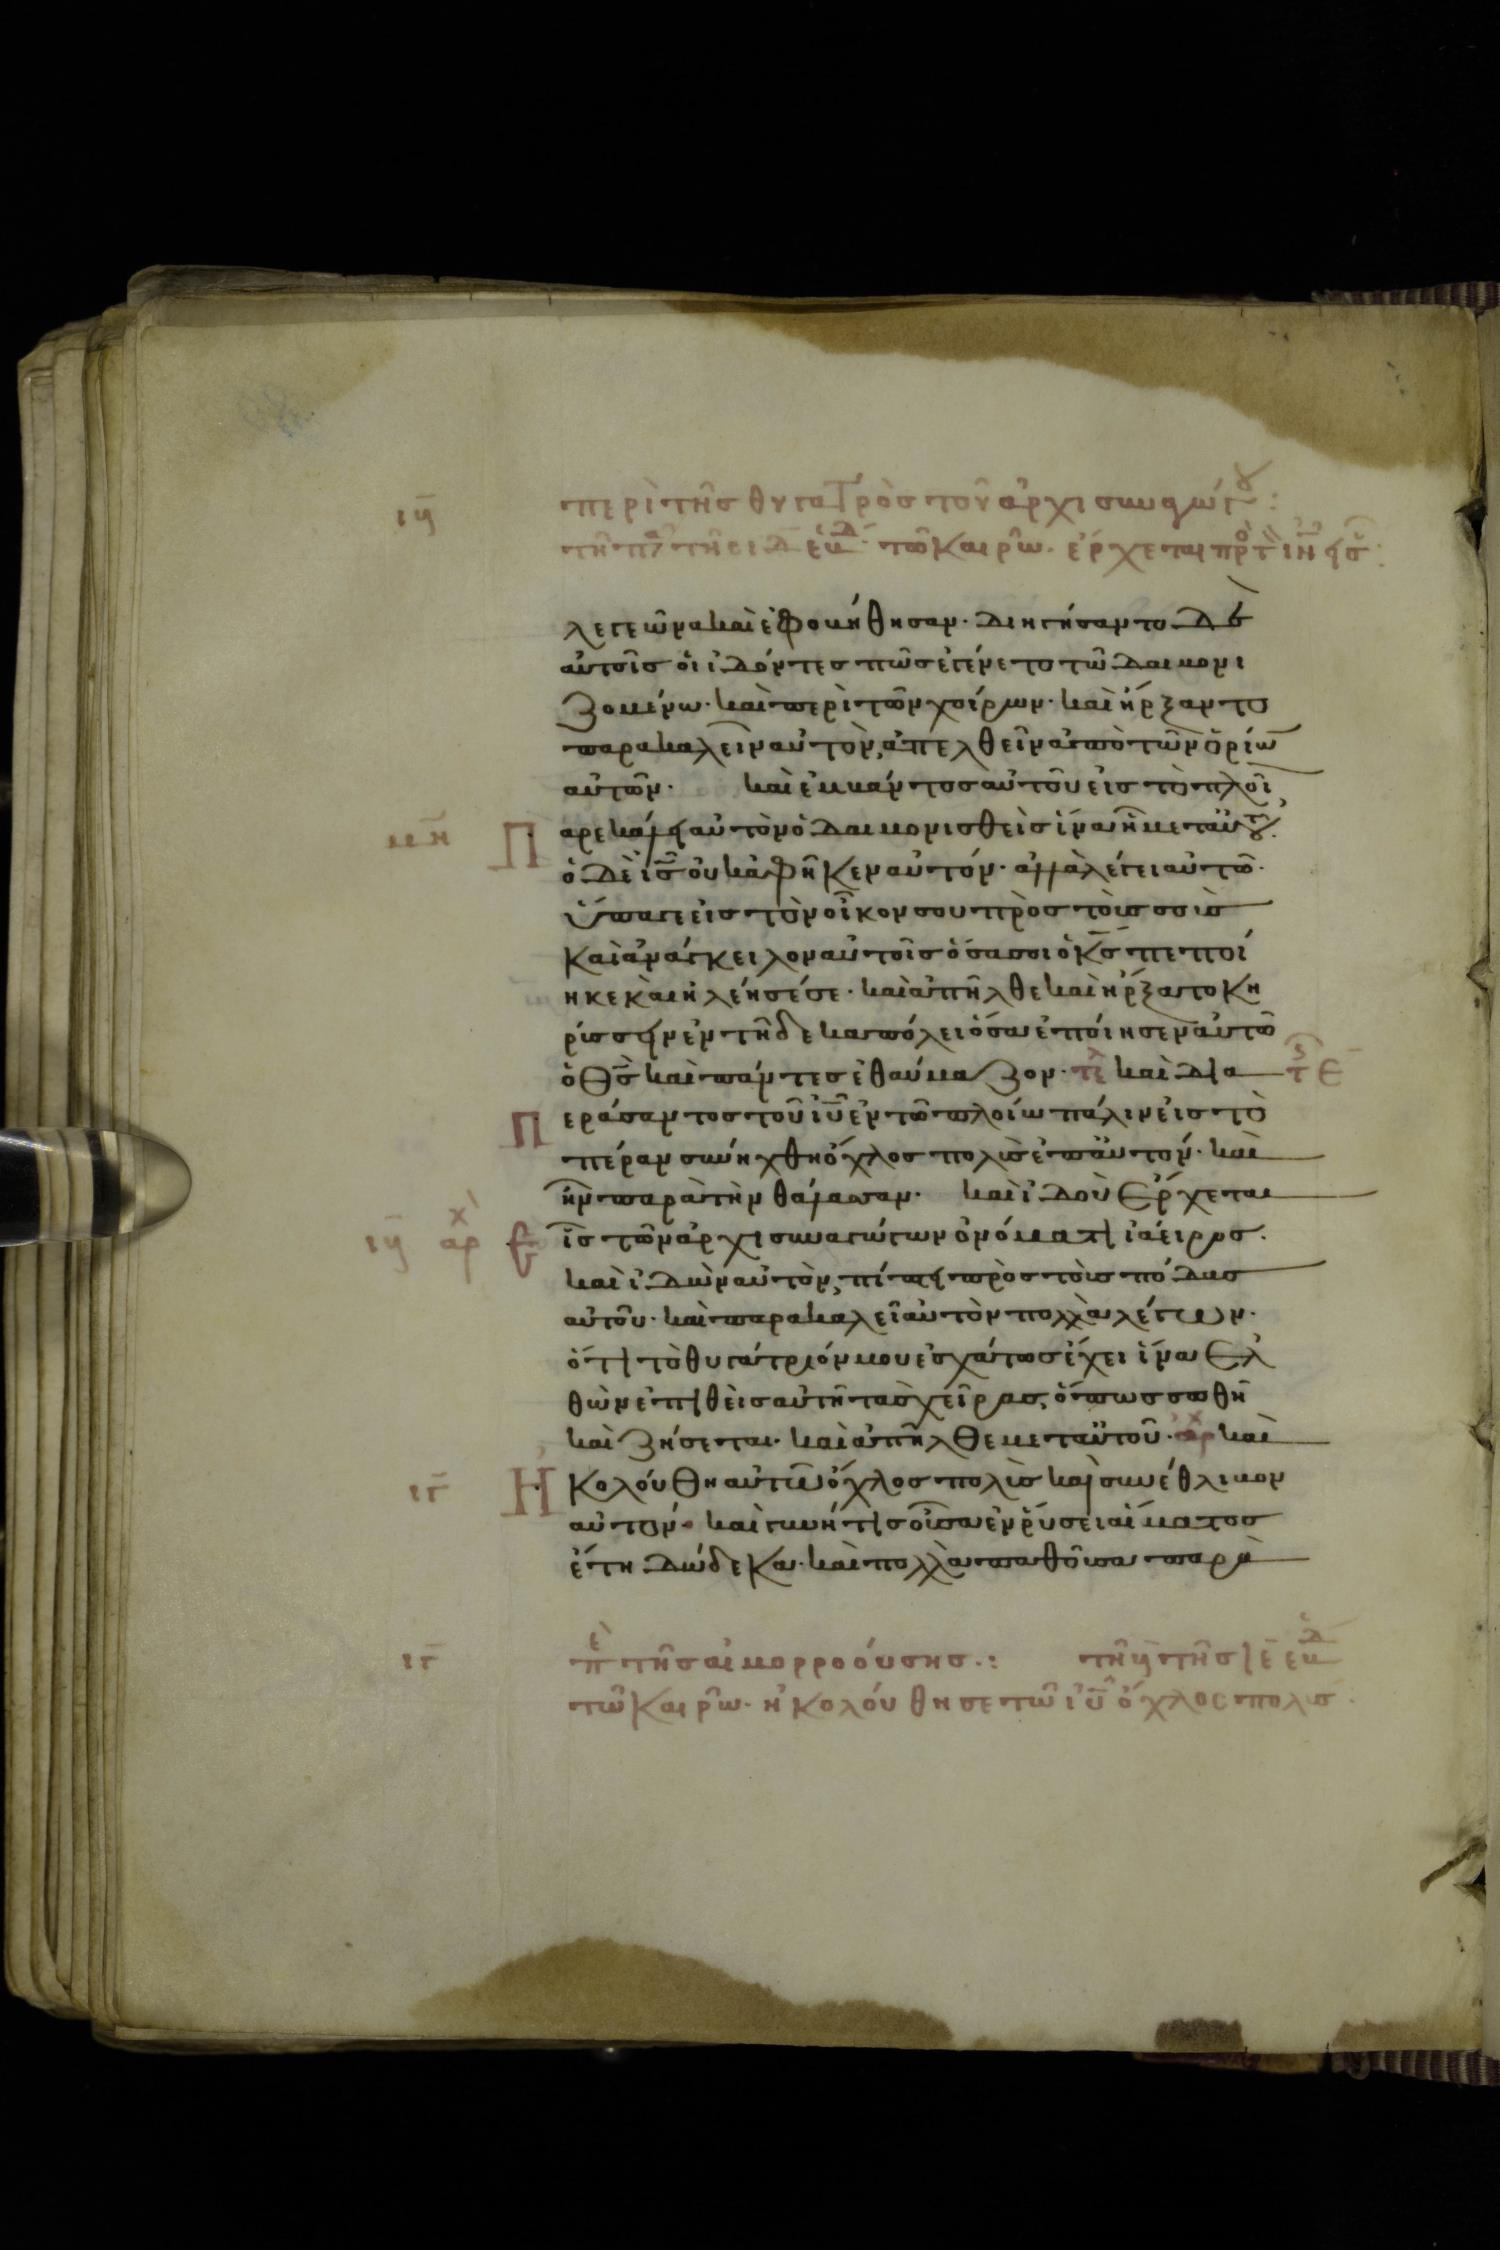 ιγ περὶ τῆς θυγατρὸς τοῦ ἀρχισυναγώγου:
τῶ καιρῶ. ἔρχεται
λεγεῶνα καὶ ἐφοβήθησαν. διηγήσαντο δὲ
αὐτοῖς οἱ ἰδόντες πῶς ἐγένετο τῶ δαιμονι
ζομένω. καὶ περὶ τῶν χοίρων. καὶ ἤρξαντο
παρακαλεῖν αὐτὸν, ἀπελθεῖν ἀπὸ τῶν ὁρίω
αὐτῶν. καὶ ἐμβάντος αὐτοῦ εἰς τὸ πλοῖ
μη Παρεκάλει αὐτὸν ὁ δαιμονισθεὶς ἵνα ῆ μεταὐτοῦ.
ὁ δὲ ις οὐκ ἀφῆκεν αὐτόν. ἀλλὰ λέγει αὐτῶ.
ὕπαγε εἰς τὸν οἶκον σου πρὸς τοὺς σοὺς
καὶ ἀνάγγειλον αὐτοῖς ὅσα σοι ὁ κς πεποί
ηκε καὶ ἠλέησέ σε. καὶ ἀπῆλθε καὶ ἤρξατο κη
ρίσσειν ἐν τῆ δεκαπόλει ὅσα ἐποίησεν αὐτῶ
ὁ θς καὶ πάντες ἐθαύμαζον. τε καὶ δια
Περάσαντος τοῦ ιυ ἐν τῶ πλοίω πάλιν εἰς τὸ
πέραν συνήχθη ὄχλος πολὺς ἐπαὐτόν. καὶ
ἦν παρὰ τὴν θάλασσαν. καὶ ἰδοὺ ἔρχεται
ιγ αρχ εἷς τῶν ἀρχισυναγώγων ὀνόματι ἰάειρος.
καὶ ἰδὼν αὐτὸν, πίπτει πρὸς τοὺς πόδας
αὐτοῦ. καὶ παρακαλεῖ αὐτὸν πολλὰ λέγων.
ὅτι τὸ θυγάτριόν μου ἐσχάτως ἔχει ἵνα ἐλ
θὼν ἐπιθεὶς αὐτῆ τὰς χεῖρας, ὅπως σωθῆ
καὶ ζήσεται. καὶ ἀπῆλθε μεταὐτοῦ. αρχ καὶ
ιγ Ἠκολούθη αὐτῶ ὄχλος πολὺς καὶ συνέθλιβον
αὐτόν. καὶ γυνή τις οὖσα ἐν ῥύσει αἵματος
ἔτη δώδεκα. καὶ πολλὰ παθοῦσα παρὰ
ιγ πε τῆς αἱμορροούσης.:
τῶ καιρῶ. ἠκολούθησε τῶ ιυ ὄχλος πολὺς.